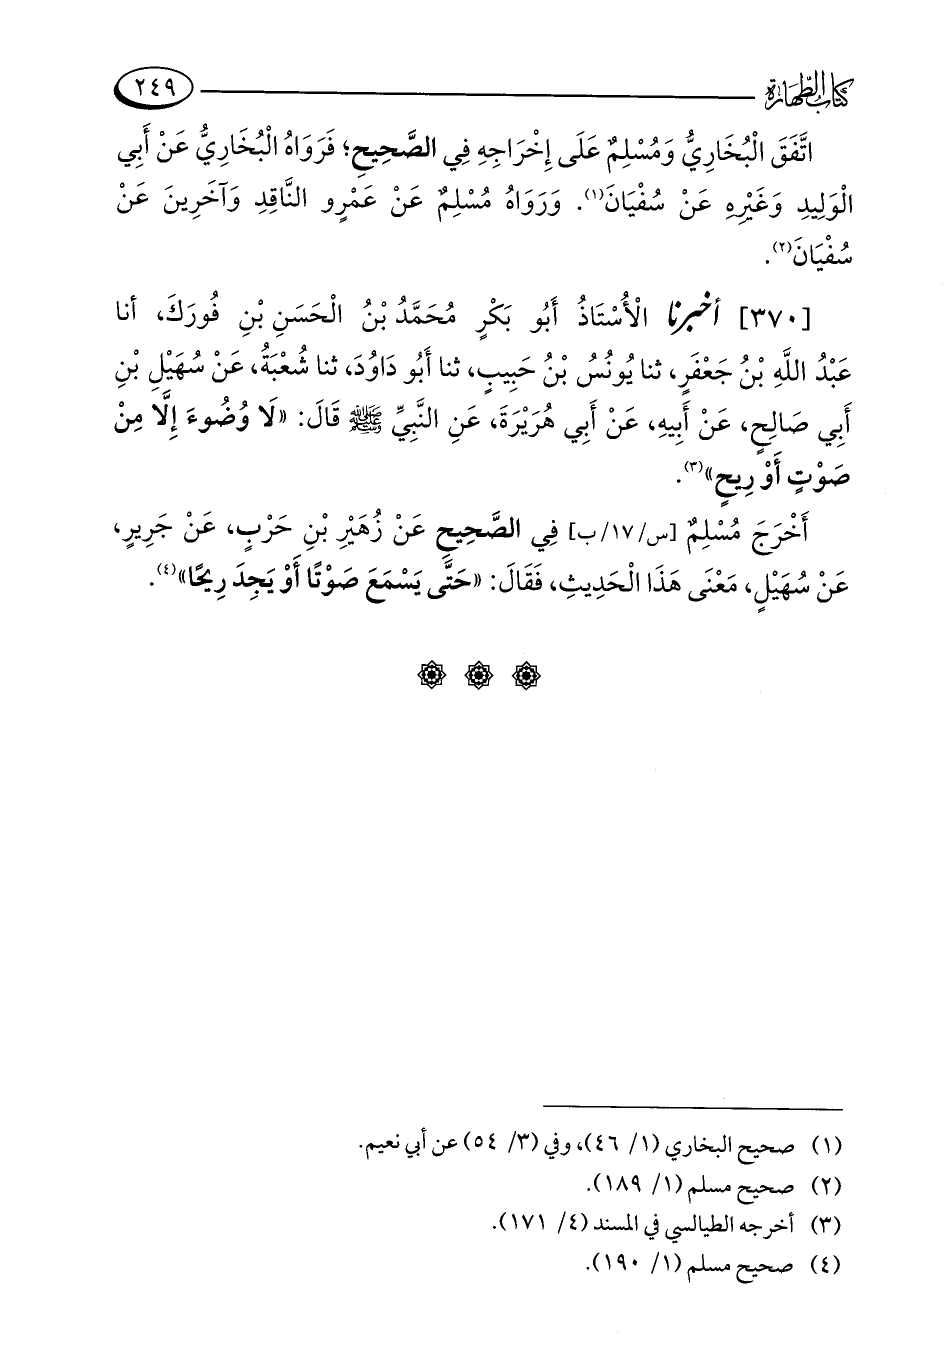 كتاب الطهارة ٢٤٩
اتَّفَقَ الْبُخَارِيُّ وَمُسْلِمٌ عَلَى إِخْرَاجِهِ فِي الصَّحِيحِ؛ فَرَوَاهُ الْبُخَارِيُّ عَنْ أَبِي
الْوَلِيدِ وَغَيْرِهِ عَنْ سُفْيَانَ(١). وَرَوَاهُ مُسْلِمٌ عَنْ عَمْرٍو النَّاقِدِ وَآخَرِينَ عَنْ
سُفْيَانَ(٢).
[٣٧٠] أخبرنا الْأُسْتَاذُ أَبُو بَكْرٍ مُحَمَّدُ بْنُ الْحَسَنِ بْنِ فُورَكَ، أنا
عَبْدُ اللَّهِ بْنُ جَعْفَرٍ، ثنا يُونُسُ بْنُ حَبِيبٍ، ثنا أَبُو دَاوُدَ، ثنا شُعْبَةُ، عَنْ سُهَيْلِ بْنِ
أَبِي صَالِحٍ، عَنْ أَبِيهِ، عَنْ أَبِي هُرَيْرَةَ، عَنِ النَّبِيِّ ﷺ قَالَ: «لَا وُضُوءَ إِلَّا مِنْ
صَوْتٍ أَوْ رِيحٍ»(٣).
أَخْرَجَ مُسْلِمٌ [س/١٧/ب] فِي الصَّحِيحِ عَنْ زُهَيْرِ بْنِ حَرْبٍ، عَنْ جَرِيرٍ،
عَنْ سُهَيْلٍ، مَعْنَى هَذَا الْحَدِيثِ، فَقَالَ: «حَتَّى يَسْمَعَ صَوْتًا أَوْ يَجِدَ رِيحًا»(٤).
(١) صحيح البخاري (١/ ٤٦)، وفي (٣/ ٥٤) عن أبي نعيم.
(٢) صحيح مسلم (١/ ١٨٩).
(٣) أخرجه الطيالسي في المسند (٤/ ١٧١).
(٤) صحيح مسلم (١/ ١٩٠).